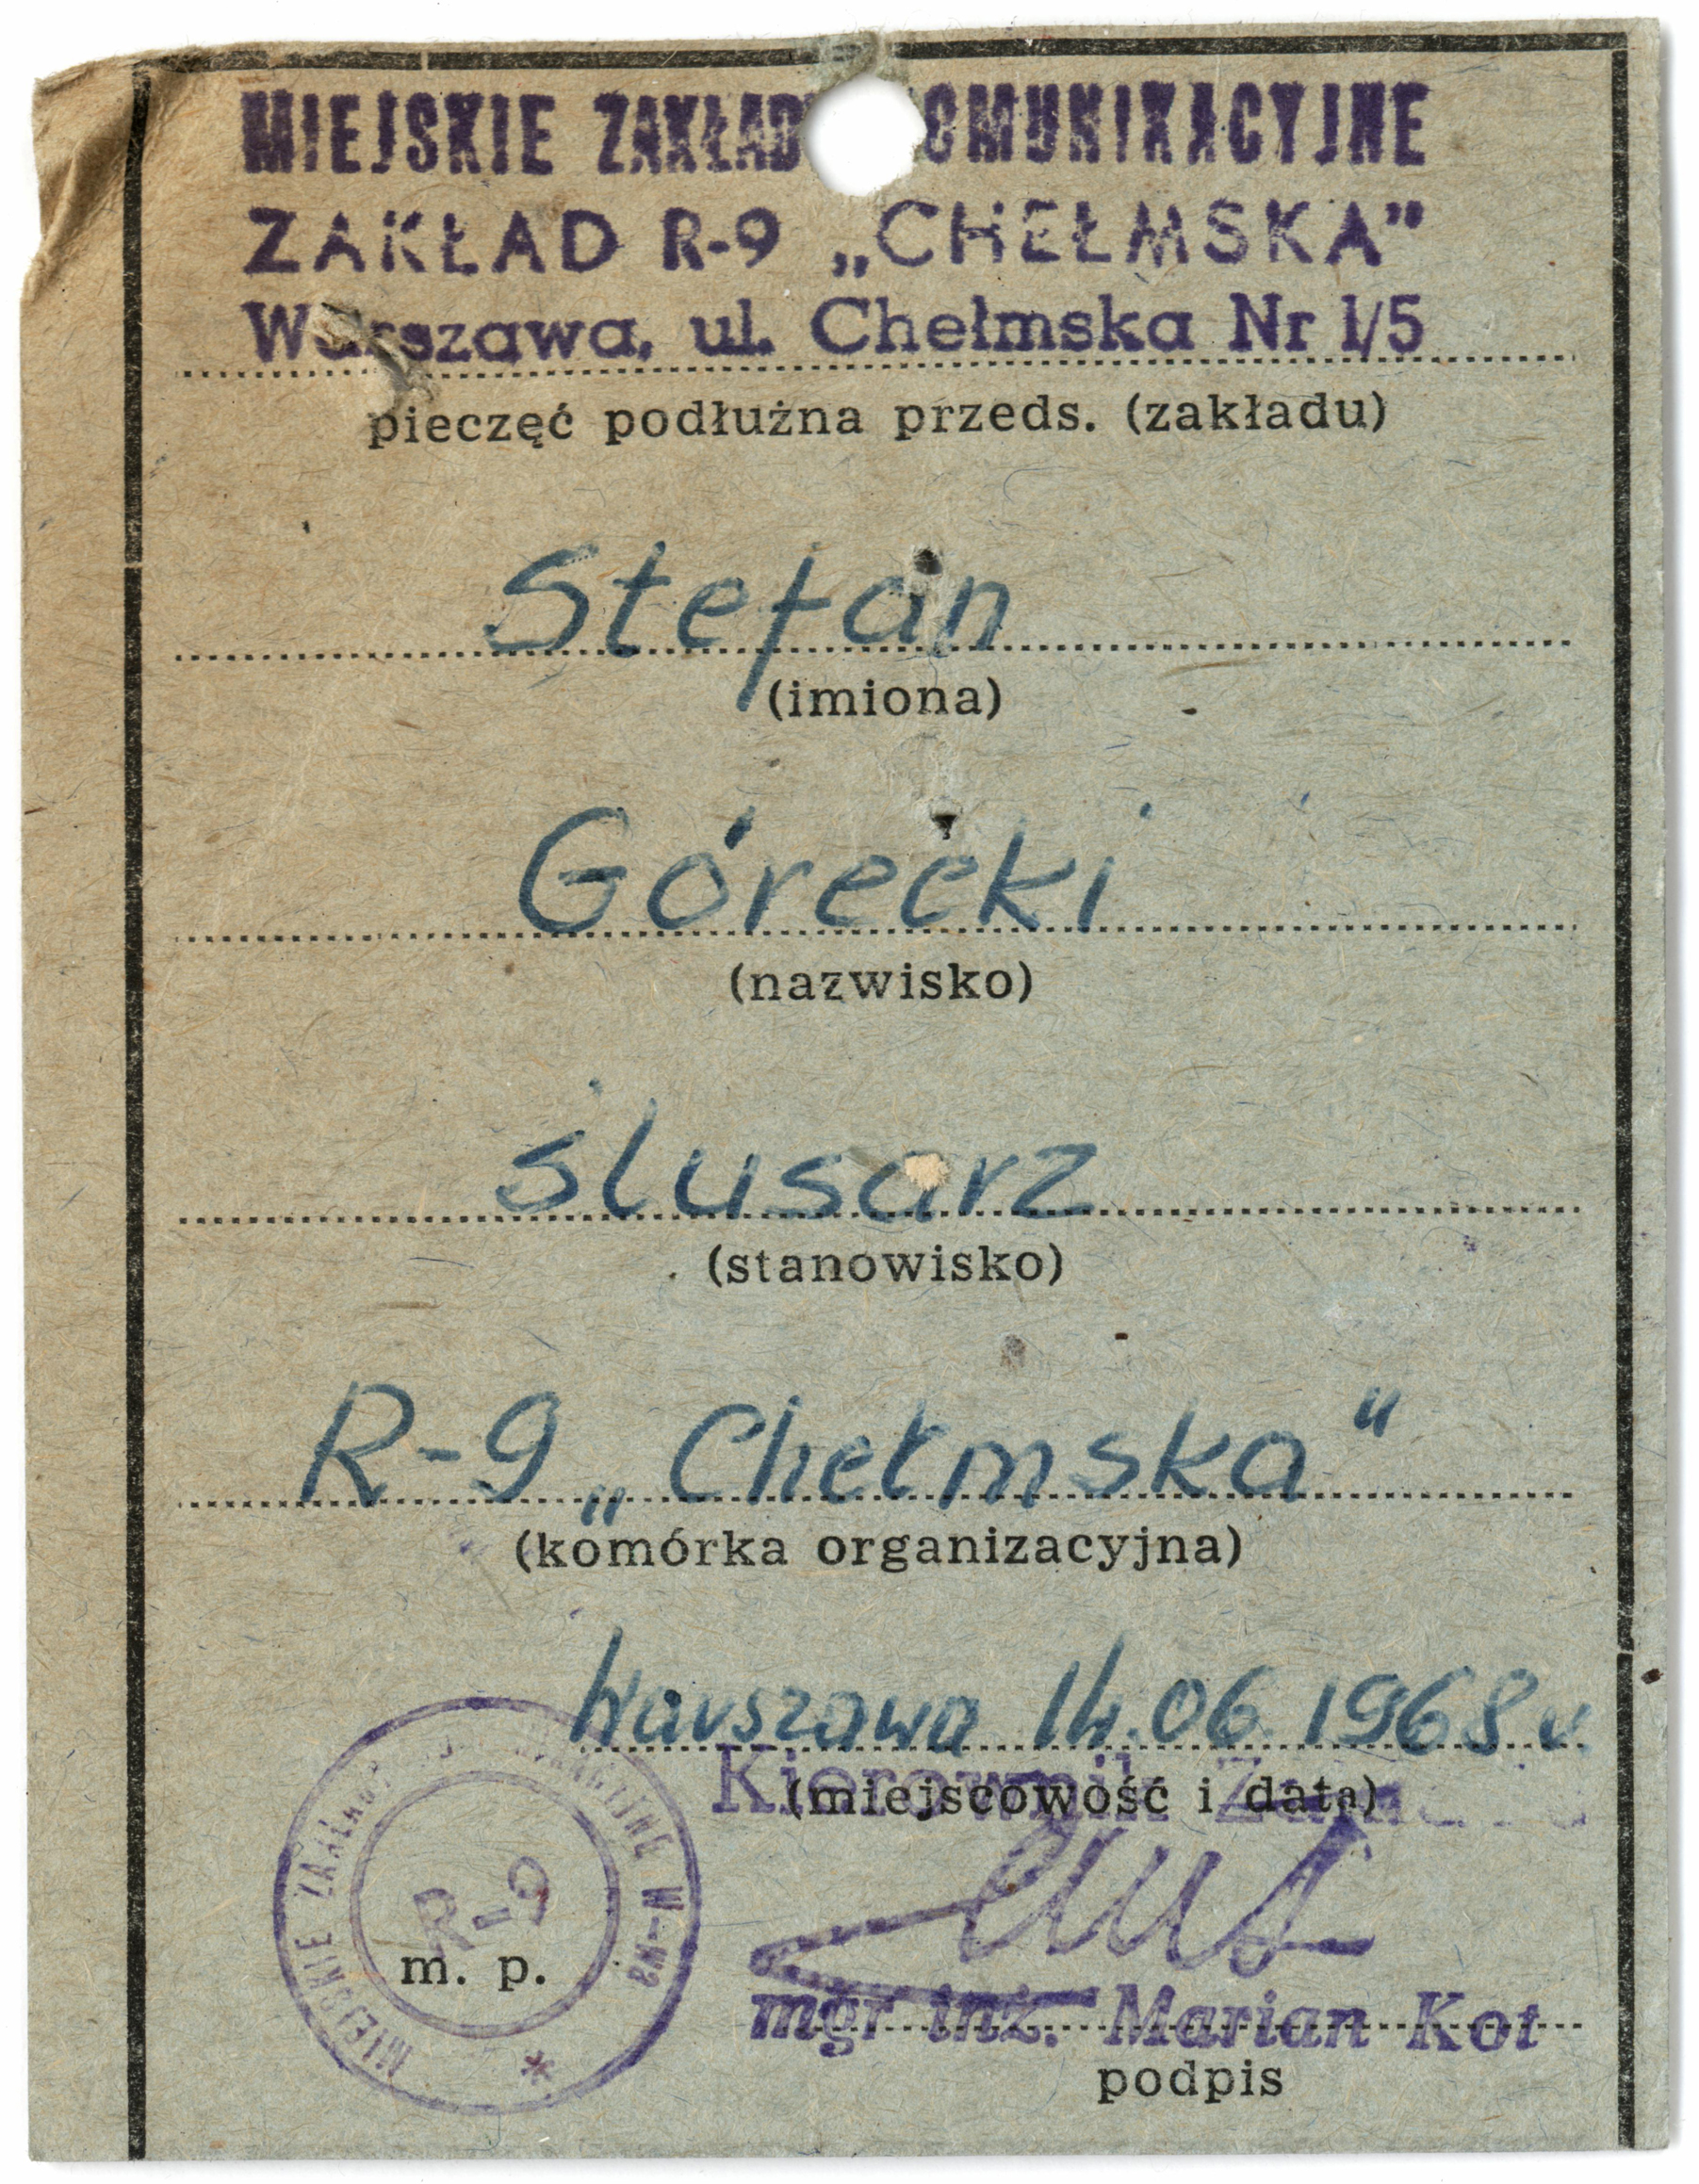 MIEJSKIE ZAKŁADY KOMUNIKACYJNE
ZAKŁAD R-9 „CHEŁMSKA”
Warszawa, ul. Chełmska Nr 1/5
pieczęć podłużna przeds. (zakładu)
Stefan
(imiona)
Górecki
(nazwisko)
ślusarz
(stanowisko)
R-9 „Chełmska"
(komórka organizacyjna)
Warszawa 14.06.1968 r
Kierownik
(miejscowość i data)
MIEJSKIE ZAKŁADY KOMUNIKACYJNE W-wa
R-9
m. p.
mgr inż. Marian Kot
podpis